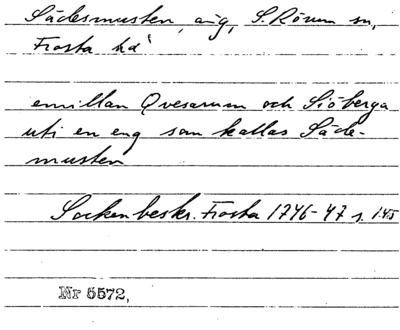 Sädesmusten, äng, S. Rörum sn,
Frosta hd
emillan Qvesarum och Siöberga
uti en eng som kallas Säde-
musten
Sockenbeskr. Frosta 1746-47 s. 145
Nr 5572,